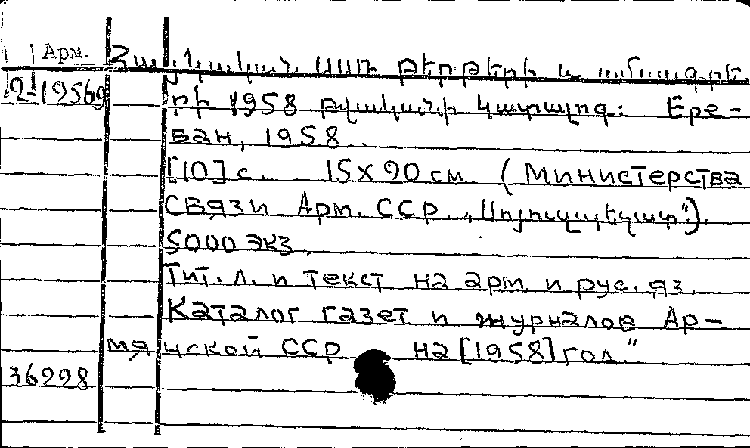 Арм. Հայկական ՍՍՌ թերթերի և ամսագրե-
2-19569 րի 1958 թվականի կատալոգ: Ере-
ван, 1958.
[10] с. 15х20 см (Министерства
связи Арм. ССР „Սոյուզպեչատ").
5000 экз.
Тит. л. и текст на арм. и рус. яз.
Каталог газет и журналов Ар-
мянской ССР на [1958] год."
36228